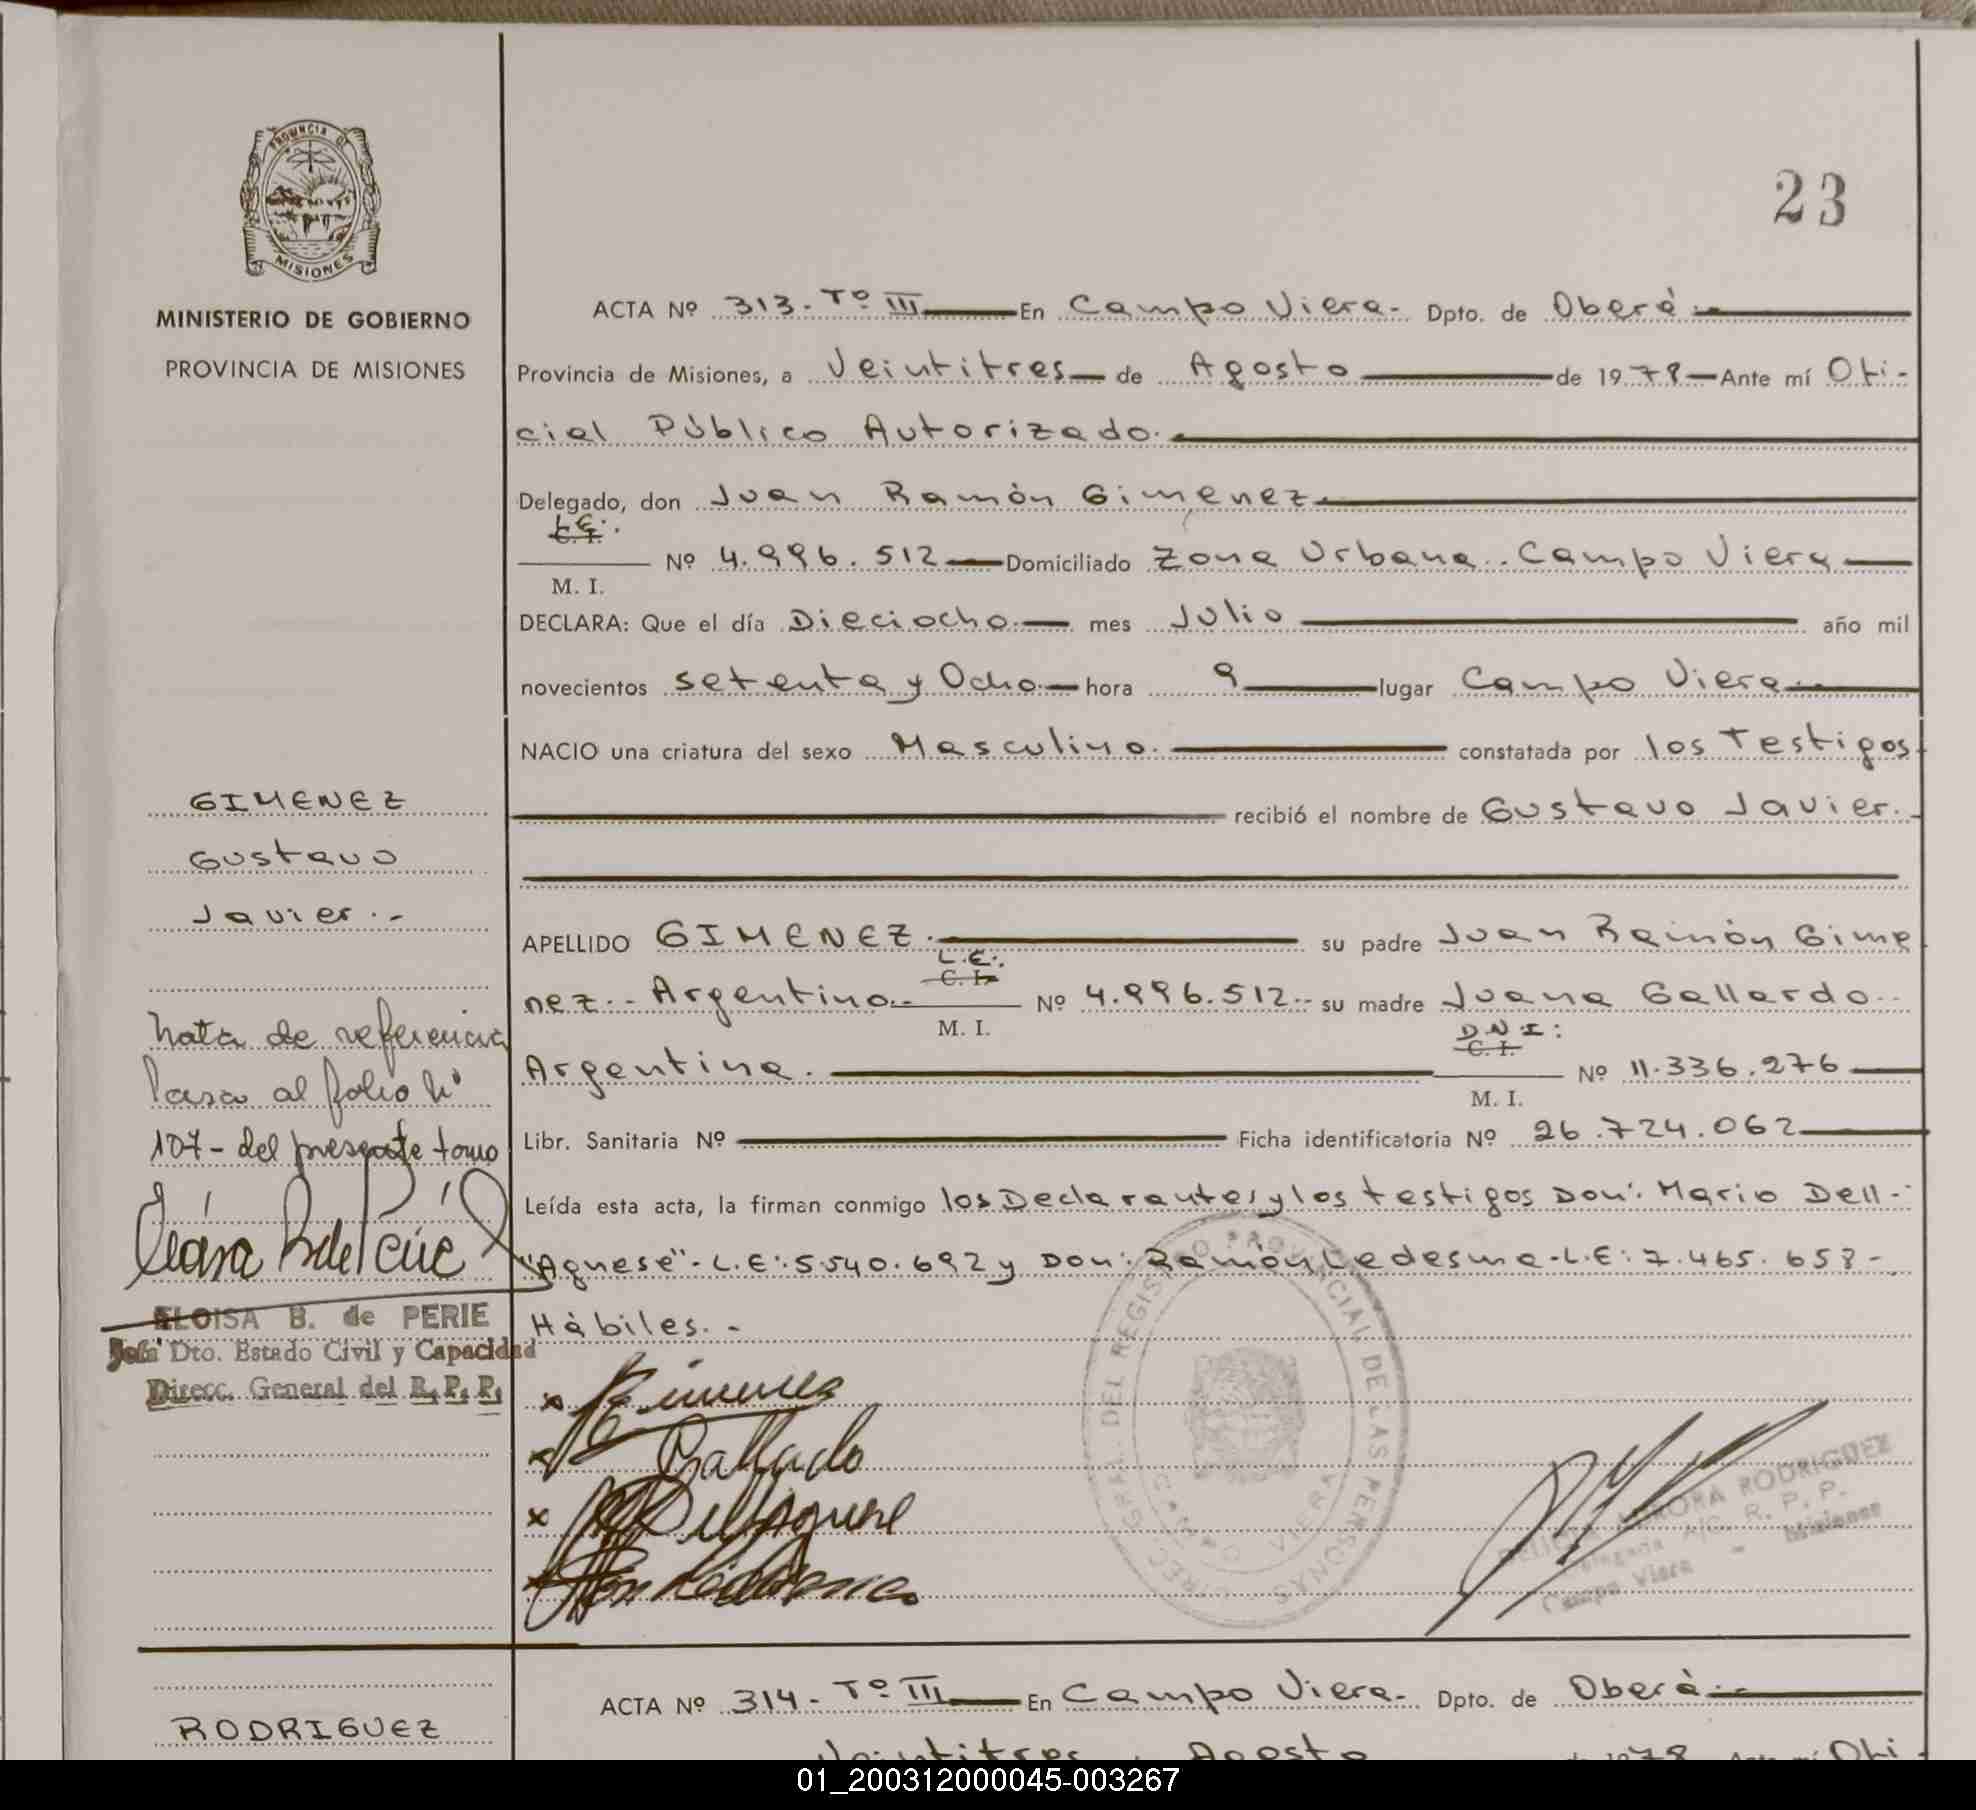 PROVINCIA DE
MISIONES
MINISTERIO DE GOBIERNO
PROVINCIA DE MISIONES
23
ACTA Nº 313.- Tº III En Campo Viera.- Dpto. de Oberá.-
Provincia de Misiones, a Veintitres de Agosto de 1978 Ante mí Ofi-
cial Público Autorizado.
Delegado, don Juan Ramón Gimenez
L.E.:
C. I.
Nº 4.996.512 Domiciliado Zona Urbana.. Campo Viera
M. I.
DECLARA: Que el día Dieciocho. mes Julio año mil
novecientos setenta y Ocho hora 9 lugar Campo Viera.
NACIO una criatura del sexo Masculino. constatada por los Testigos
recibió el nombre de Gustavo Javier.
APELLIDO GIMENEZ. su padre Juan Ramón Gime
L.E.:
C. I.
nez.. Argentino.. Nº 4.996.512.. su madre Juana Gallardo..
M. I.
D.N.I:
C. I.
Argentina. Nº 11.336.276
M. I.
Libr. Sanitaria Nº Ficha identificatoria Nº 26.724.062
Leída esta acta, la firman conmigo los Declarantes y los testigos Don: Mario Dell-
"Agnese"- L.E:5.540.692 y Don: Ramón Ledesma-L.E: 7.465.658-
Hábiles. -
GIMENEZ
Gustavo
Javier.-
Nota de referencia
Pasa al folio Nº
107- del presente tomo
ELOISA B. de PERIE
Jefa Dto. Estado Civil y Capacidad
Direcc. General del R. P. P.
x Gimenez
x Gallardo
x Dellagnese
Ledesma
DIREC. GRAL. DEL REGISTRO PROVINCIAL DE LAS PERSONAS
CAMPO VIERA
AURORA RODRIGUEZ
Delegada A/C. R. P. P.
Campo Viera - Misiones
ACTA Nº 314.- Tº III En Campo Viera.- Dpto. de Oberá.-
RODRIGUEZ
Veintitres Agosto de 1978 Ante mí Ofi-
01_200312000045-003267